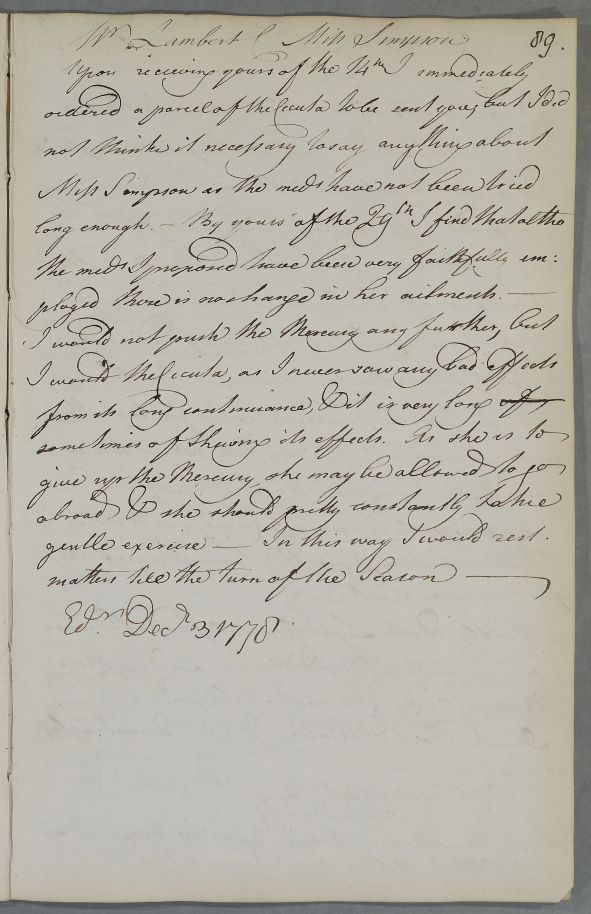 Mr. Lambert C Miss Simpson 89.
Upon recieving yours of the 14th I immediately
ordered a parcel of the Cicuta to be sent you, but I did
not thinke it necessary to say anything about
Miss Simpson as the meds have not been tried
long enough. — By yours of the 29th I find that altho
the meds I proposed have been very faithfully em:
ployed there is no change in her ailments. —
I would not push the Mercury any further, but
I would the Cicuta, as I never saw any bad effects
from its long continuance, & it is very long
sometimes of shewing its effects. As she is to
give up the Mercury she may be allowed to go
abroad & she should pretty constantly take
gentle exercise — In this way I would rest
matters till the turn of the Season —
Edr. Decr. 3 1778